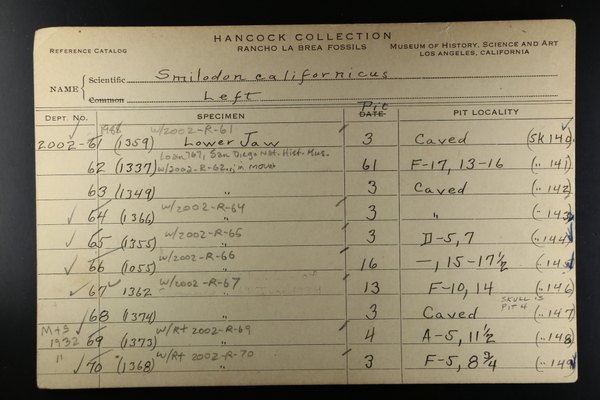 HANCOCK COLLECTION
REFERENCE CATALOG RANCHO LA BREA FOSSILS MUSEUM OF HISTORY, SCIENCE AND ART
LOS ANGELES, CALIFORNIA
NAME { Scientific Smilodon californicus
Common Left
DEPT. NO. SPECIMEN Pit DATE PIT LOCALITY
w/2002-R-61
2002-61 (1359) Lower Jaw 3 Caved (SK 140
Loan 767, San Diego Nat. Hist. Mus.
62 (1337) w/2002-R-62 in mount 61 F-17, 13-16 (" 141)
63 (1349) " 3 Caved (" 142
w/2002-R-64
64 (1366) " 3 " (" 143
w/2002-R-65
65 (1355) " 3 D-5, 7 (" 144
w/2002-R-66
66 (1055) " 16 —, 15-17½ (" 145
w/2002-R-67
67 1362 13 F-10, 14 (" 146)
SKULL IS PIT 4
68 (1374) " 3 Caved (" 147)
M+S 1932 w/R+ 2002-R-69
69 (1373) " 4 A-5, 11½ (" 148)
w/R+ 2002-R-70
" 70 (1368) " 3 F-5, 8¾ (" 149